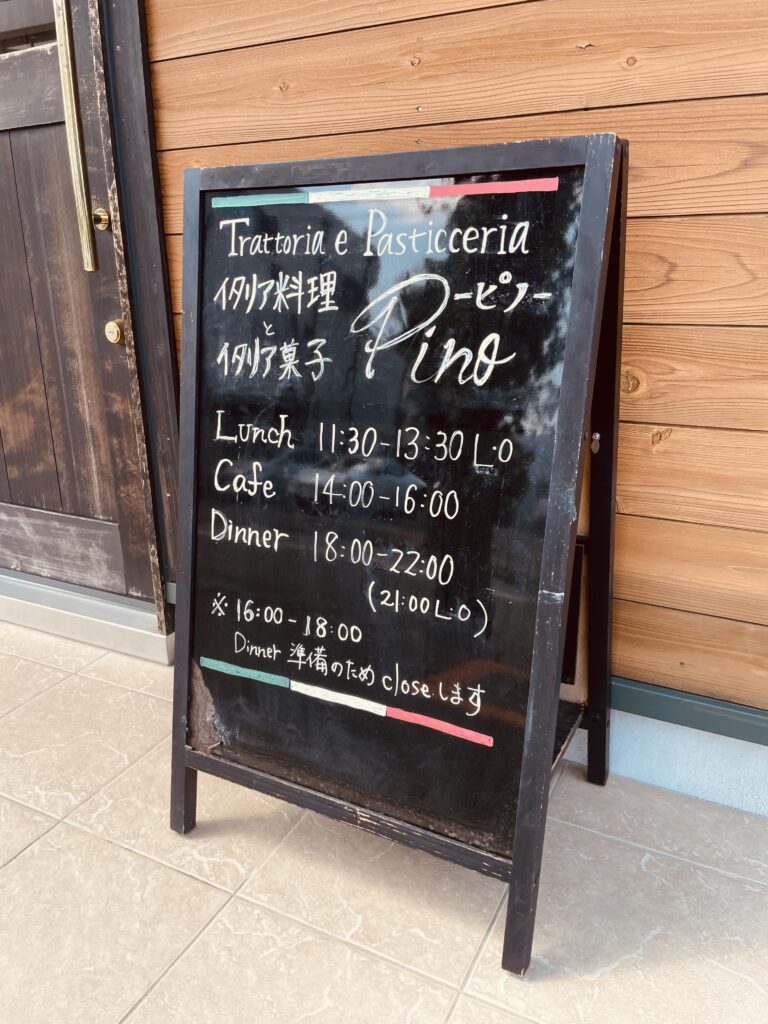 Trattoria e Pasticceria
イタリア料理
と
イタリア菓子
Pino
-ピノ-
Lunch 11:30-13:30 L.O
Cafe 14:00-16:00
Dinner 18:00-22:00
(21:00 L.O)
※16:00-18:00
Dinner 準備のため close します